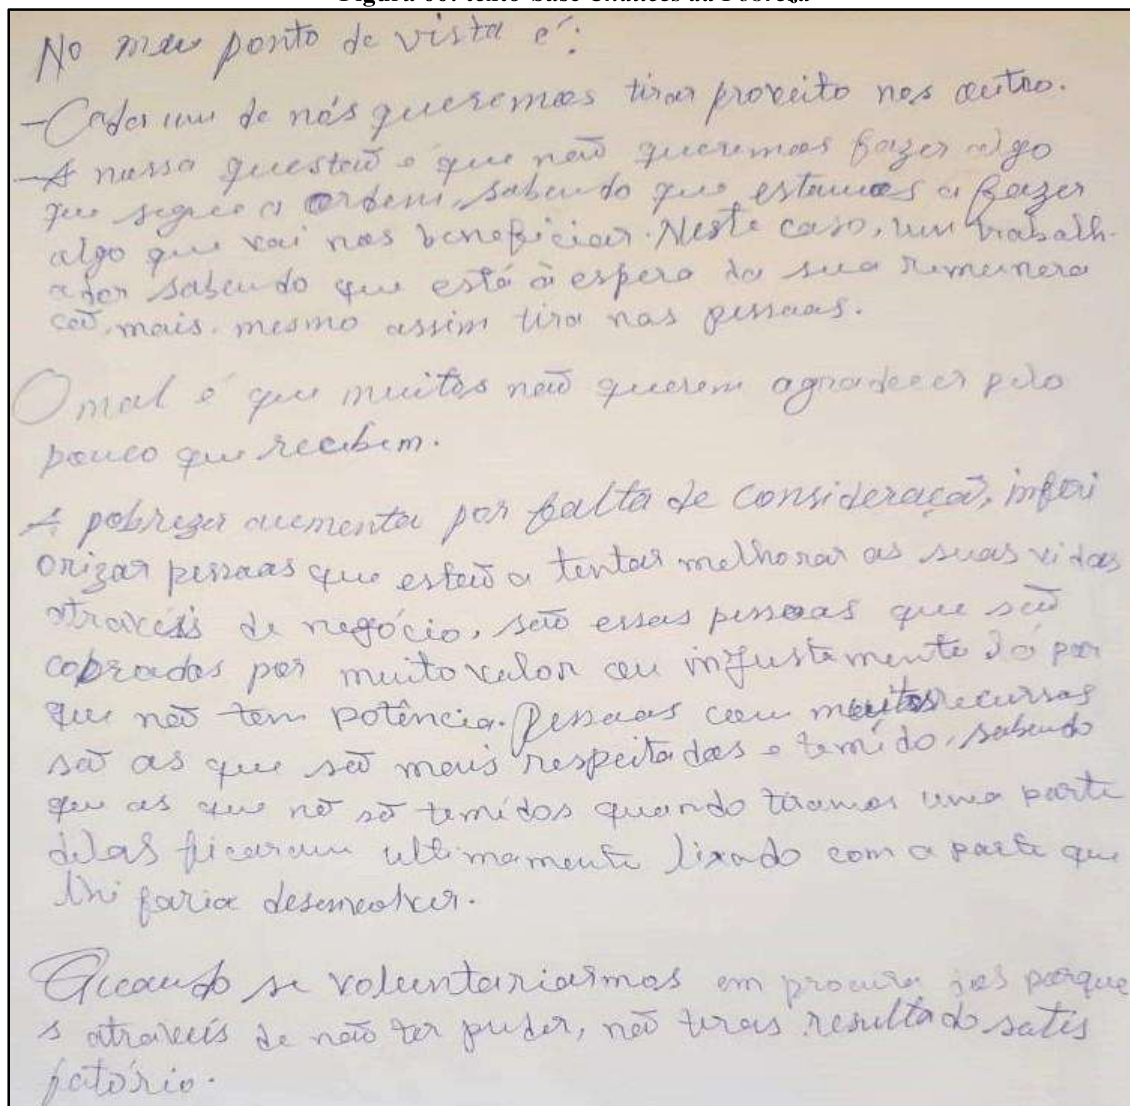 No meu ponto de vista é:
-Cada um de nós queremos tirar proveito nos outro.
-A nossa questão é que não queremos fazer algo
que segue a ordem, sabendo que estamos a fazer
algo que vai nos beneficiar. Neste caso, um trabalh-
ador sabendo que está à espera da sua remunera
ção, mais mesmo assim tira nas pessoas.
O mal é que muitos não querem agradecer pelo
pouco que recebem.
A pobreza aumenta por falta de consideração, inferi
orizar pessoas que estão a tentar melhorar as suas vidas
através de negócio, são essas pessoas que são
cobradas por muito valor ou injustamente só por
que não tem potência. Pessoas com muitos recursos
são as que são mais respeitadas e temido, sabendo
que as que não são temidos quando tiramos uma parte
delas ficaram ultimamente lixado com a parte que
lhi faria desenvolver.
Quando se voluntariarmos em procura porque
s através de não ter puder, não teras resultado satis
fatório.